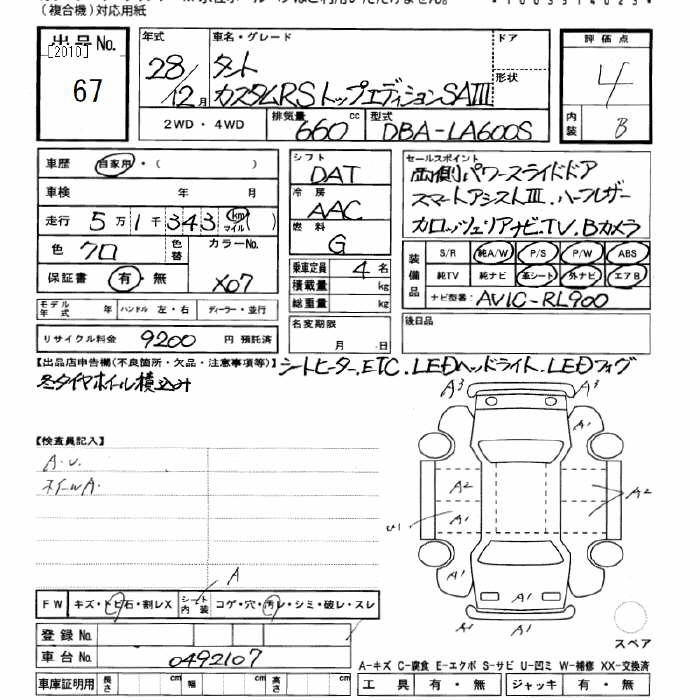 (複合機)対応用紙
出品No.
[2010]
67
年式
28/12月
車名・グレード
タント
カスタムRSトップエディションSAIII
ドア
形状
2WD・4WD
排気量
660
cc
型式
DBA-LA600S
評価点
4
内装
B
車歴 自家用・( )
車検 年 月
走行 5万1千343 km マイル ( )
色 クロ 色替 カラーNo. X07
保証書 有・無
モデル年式 年 ハンドル 左・右 ディーラー・並行
リサイクル料金 9200 円 預託済
シフト
DAT
冷房
AAC
燃料
G
乗車定員 4 名
積載量 kg
総重量 kg
名変期限
月 日
セールスポイント
両側パワースライドドア
スマートアシストIII.ハーフレザー
カロッツェリアナビ.TV.Bカメラ
装備品
S/R 純A/W P/S P/W ABS
純TV 純ナビ 革シート 外ナビ エアB
ナビ型番: AVIC-RL900
後日品
【出品店申告欄(不良箇所・欠品・注意事項等)】
シートヒーター.ETC.LEDヘッドライト.LEDフォグ
冬タイヤホイル積込み
【検査員記入】
A.U.
ホイールA.
A3 A3
A1
A2 A2
A1
U1
A1 A1
A1
A1 A1
A
FW キズ・トビ石・割レX シート内装 コゲ・穴・汚レ・シミ・破レ・スレ
登録No.
車台No. 0492107
車庫証明用 長さ cm 幅 cm 高さ cm
スペア
A-キズ C-腐食 E-エクボ S-サビ U-凹ミ W-補修 XX-交換済
工具 有・無 ジャッキ 有・無